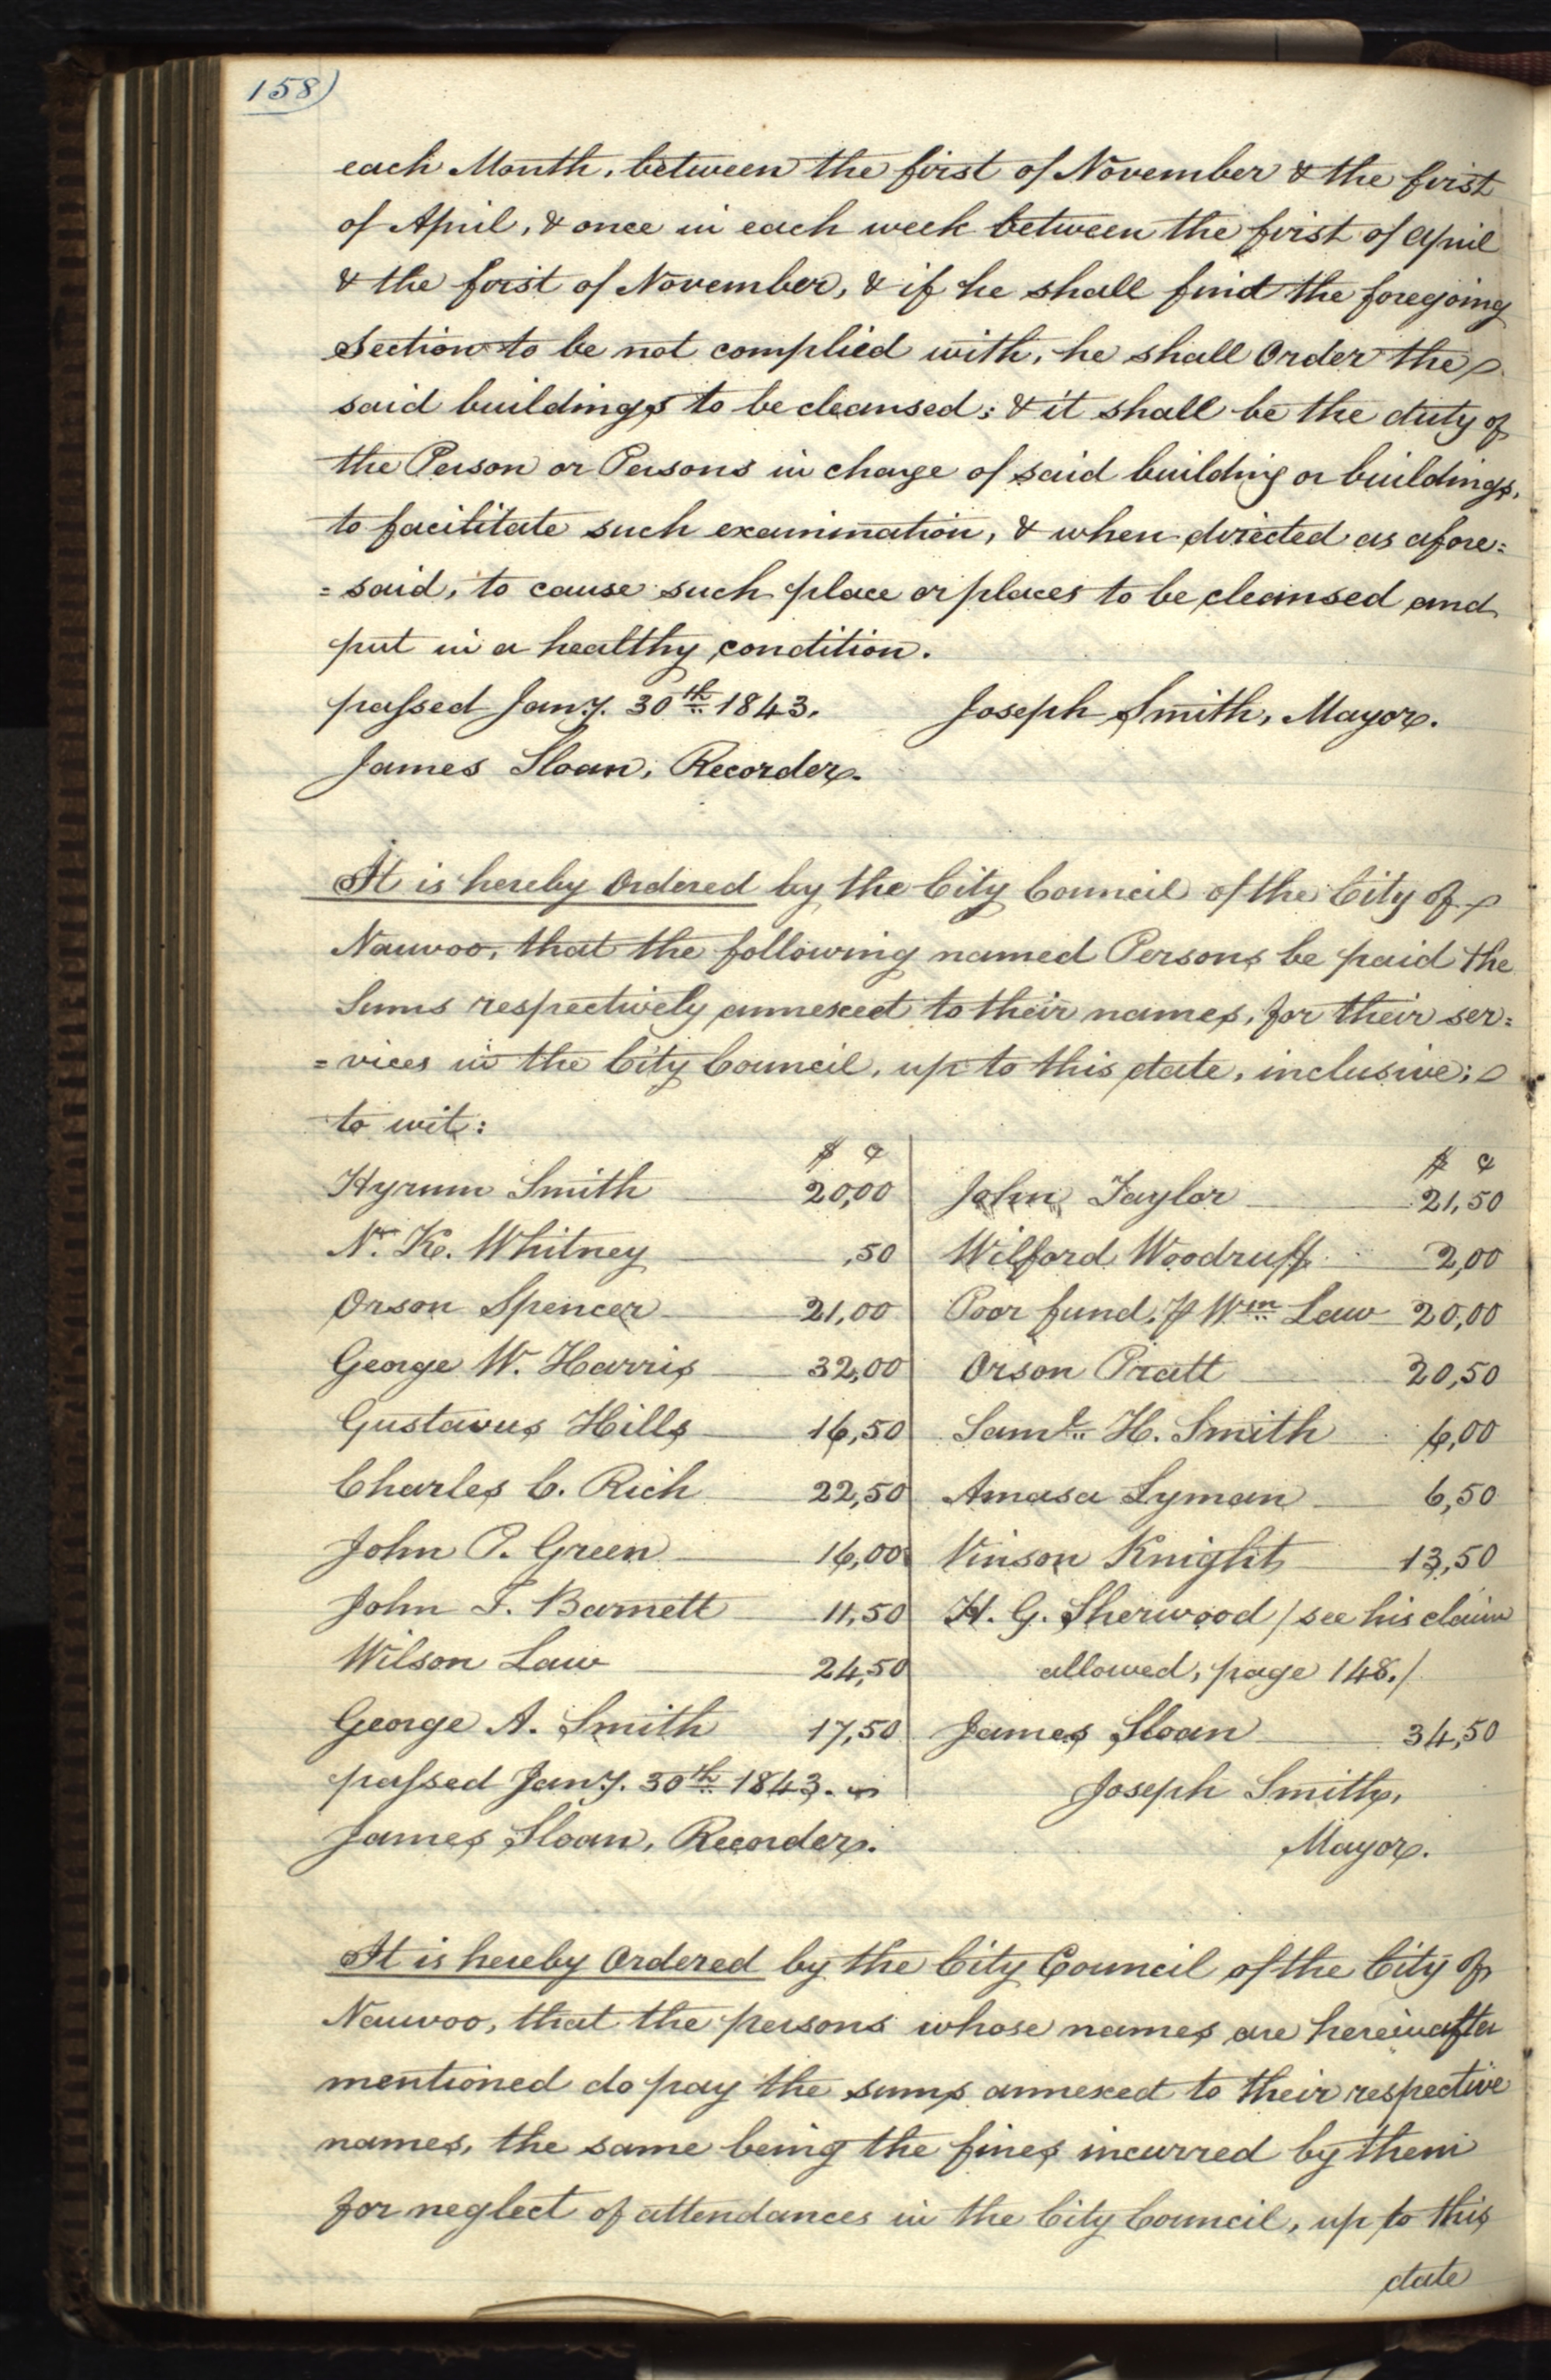 158)
each Month, between the first of November & the first
of April, & once in each week between the first of April
& the first of November, & if he shall find the foregoing
Section to be not complied with, he shall Order the
said buildings to be cleansed; & it shall be the duty of
the Person or Persons in charge of said building or buildings,
to facilitate such examination, & when directed as afore=
=said, to cause such place or places to be cleansed and
put in a healthy condition.
passed Jany. 30th 1843. Joseph Smith, Mayor.
James Sloan, Recorder.
It is hereby Ordered by the City Council of the City of
Nauvoo, that the following named Persons be paid the
Sums respectively annexed to their names, for their ser=
=vices in the City Council, up to this date, inclusive;
to wit:
$ c $ c
Hyrum Smith 20,00 John Taylor 21,50
N. K. Whitney ,50 Wilford Woodruff 2,00
Orson Spencer 21,00 Poor fund, P Wm Law 20,00
George W. Harris 32,00 Orson Pratt 20,50
Gustavus Hills 16,50 Saml. H. Smith 6,00
Charles C. Rich 22,50 Amasa Lyman 6,50
John P. Green 16,00 Vinson Knight 13,50
John T. Barnett 11,50 H. G. Sherwood / see his claim
Wilson Law 24,50 allowed, page 148./
George A. Smith 17,50 James Sloan 34,50
passed Jany. 30th 1843. Joseph Smith,
James Sloan, Recorder. Mayor.
It is hereby Ordered by the City Council of the City of
Nauvoo, that the persons whose names are hereinafter
mentioned do pay the sums annexed to their respective
names, the same being the fines incurred by them
for neglect of attendances in the City Council, up to this
date